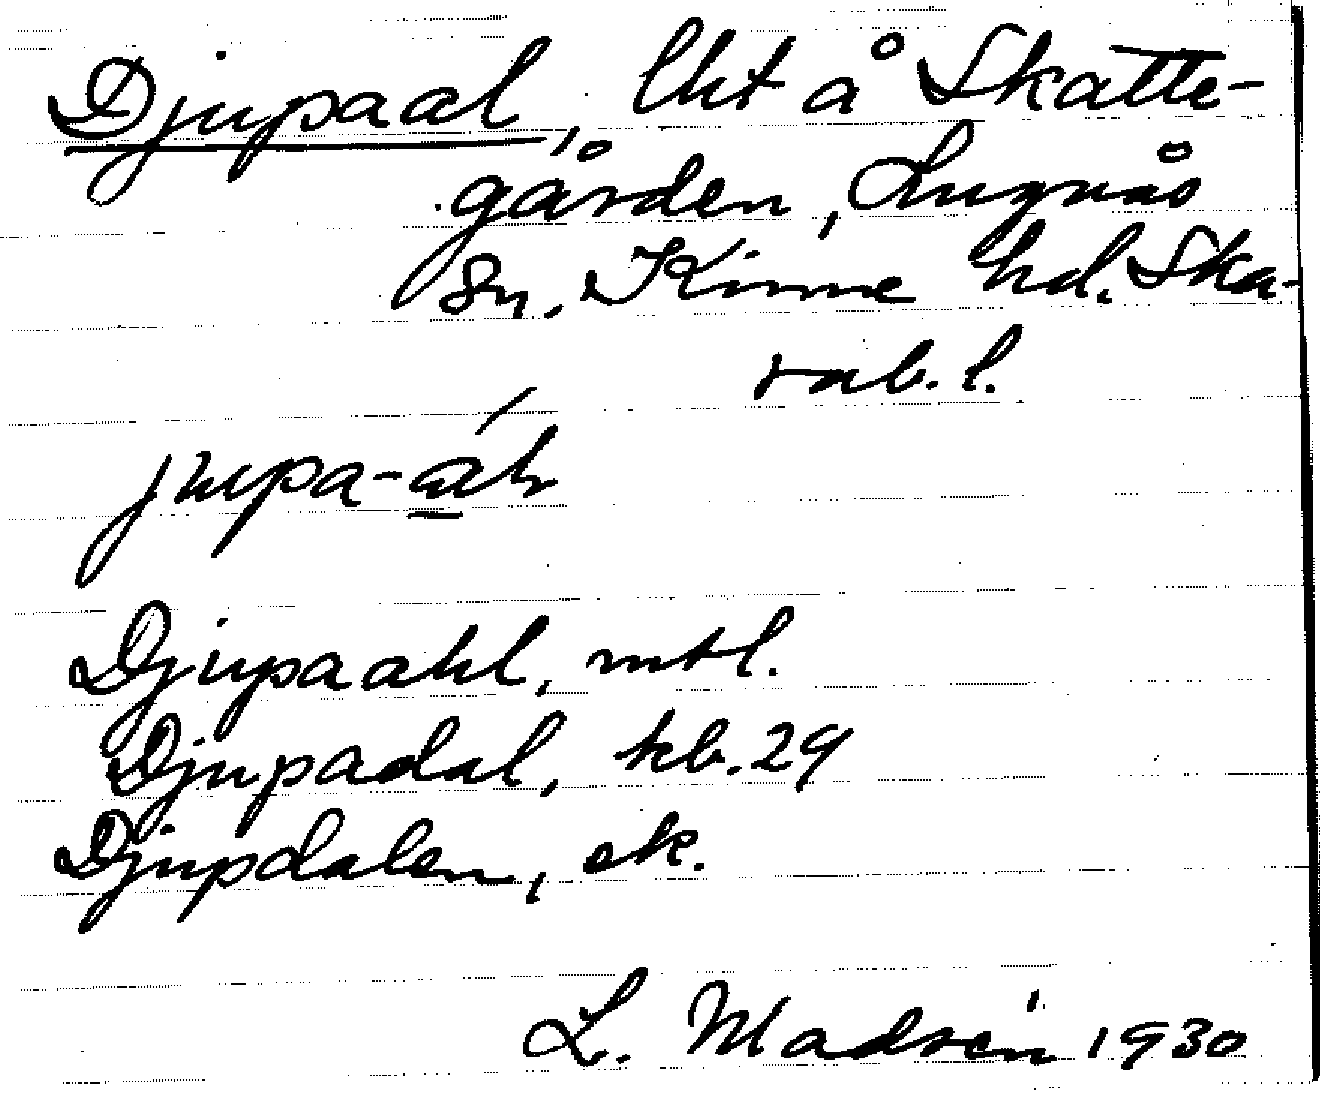 Djupaal, lht å Skatte-
gården, Lugnås
Sn. Kinne hd. Ska-
rab. l.
jupa-áh
Djupaahl, mtl.
Djupadal, kb. 29
Djupdalen, ek.
L. Madsén 1930